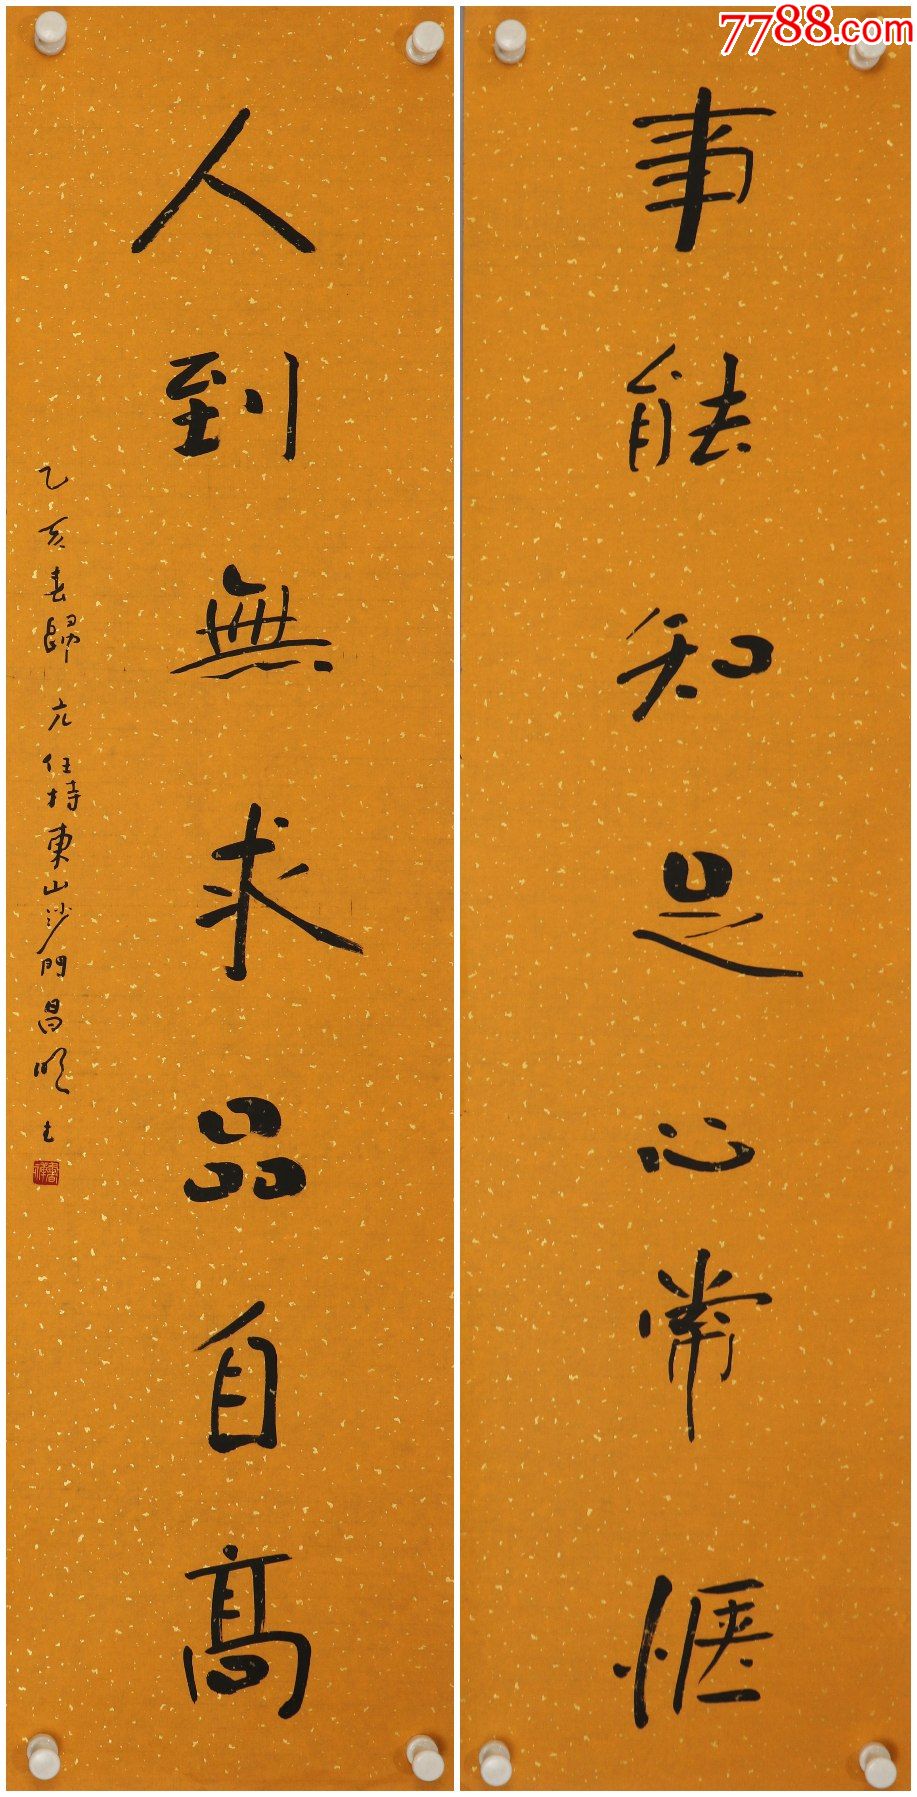 7788.com
事能知足心常惬
人到無求品自高
乙亥春歸元住持東山沙門昌明书